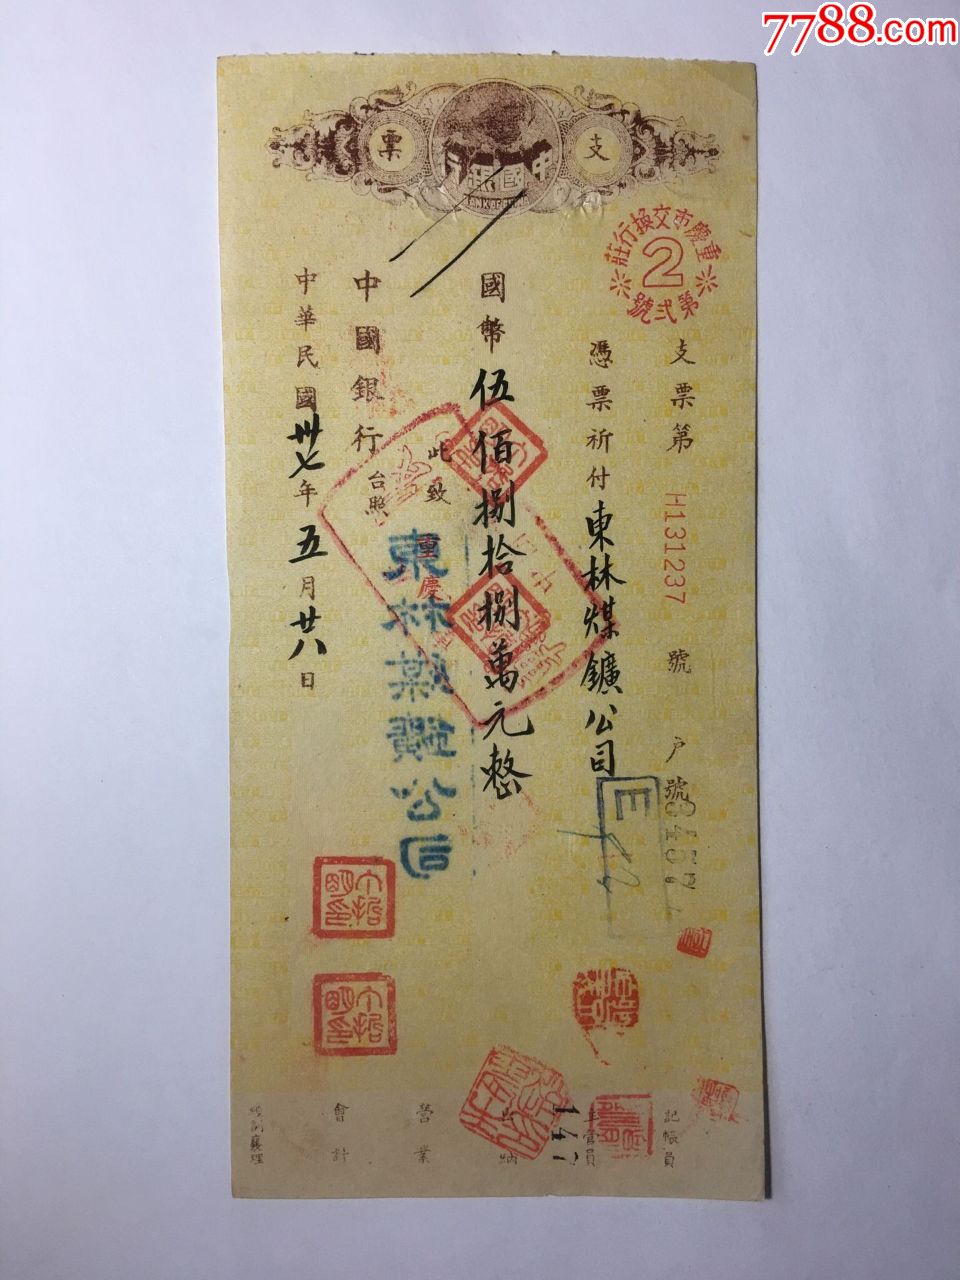 7788.com
支票
中國銀行
BANK OF CHINA
重慶市交換行莊
2
第弍號
支票第 H131237 號 户號
憑票祈付東林煤鑛公司
國幣伍佰捌拾捌萬元整
此致
重慶
中國銀行台照
東林煤鑛公司
中華民國卅七年五月廿八日
E
記帳員
主管員
出納
營業
會計
141